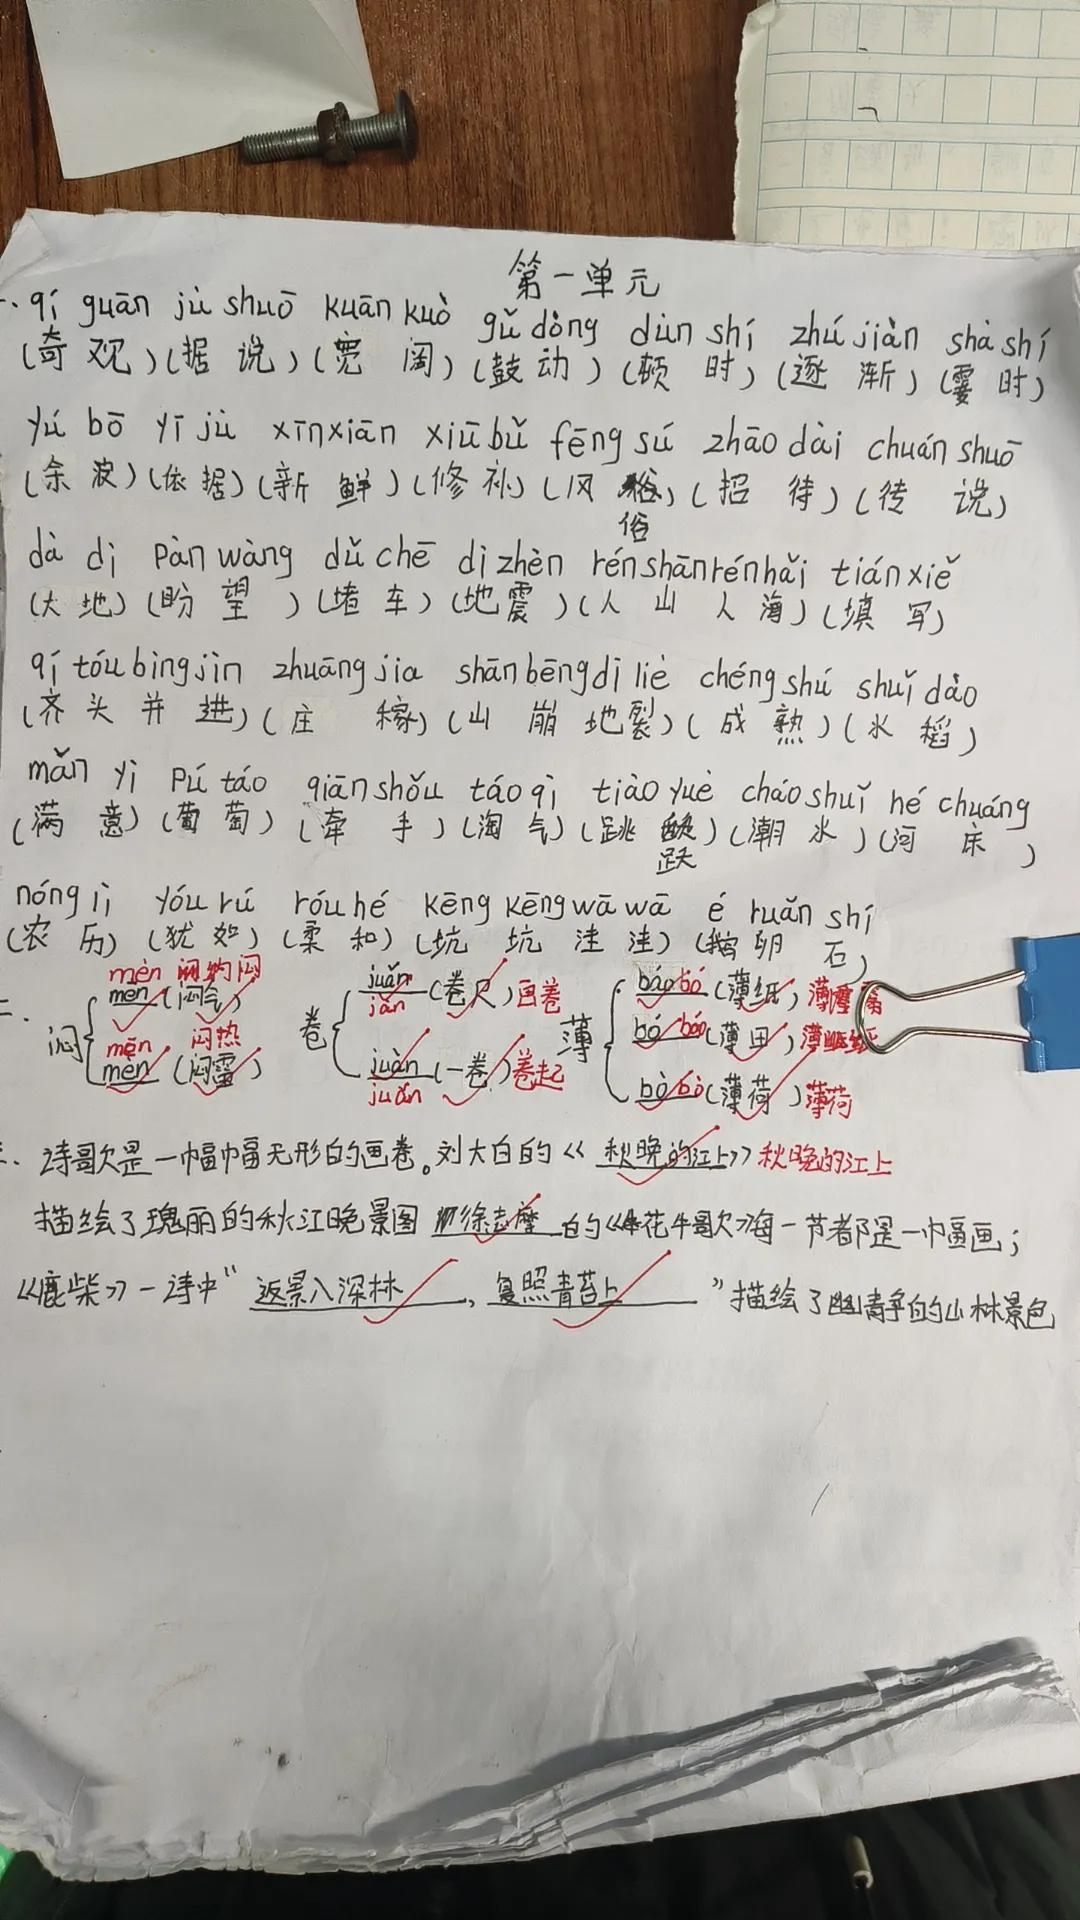 第一单元
一. qí guān jù shuō kuān kuò gǔ dòng dùn shí zhú jiàn shà shí
(奇观)(据说)(宽阔)(鼓动)(顿时)(逐渐)(霎时)
yú bō yī jù xīn xiān xiū bǔ fēng sú zhāo dài chuán shuō
(余波)(依据)(新鲜)(修补)(风俗)(招待)(传说)
俗
dà dì pàn wàng dǔ chē dì zhèn rén shān rén hǎi tián xiě
(大地)(盼望)(堵车)(地震)(人山人海)(填写)
qí tóu bìng jìn zhuāng jia shān bēng dì liè chéng shú shuǐ dào
(齐头并进)(庄稼)(山崩地裂)(成熟)(水稻)
mǎn yì pú táo qiān shǒu táo qì tiào yuè cháo shuǐ hé chuáng
(满意)(葡萄)(牵手)(淘气)(跳)(潮水)(河床)
跃
nóng lì yóu rú róu hé kēng kēng wā wā é ruǎn shí
(农历)(犹如)(柔和)(坑坑洼洼)(鹅卵石)
mèn 闷闷
二. 闷 mēn (闷气) 卷 juǎn (卷尺) 画卷 薄 báo bó (薄纸) 薄
mēn 闷热 juàn bó báo (薄田) 薄纸
mèn (闷雷) juàn (一卷) 卷起 bò bò (薄荷) 薄荷
juǎn
三. 诗歌是一幅幅无形的画卷。刘大白的《秋晚的江上》秋晚的江上
描绘了瑰丽的秋江晚景图 徐志摩的《花牛歌》每一节都是一幅画;
《鹿柴》一诗中“返景入深林,复照青苔上”描绘了幽静的山林景色